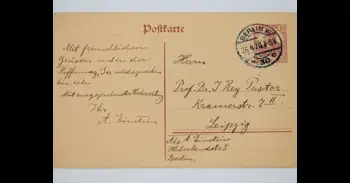 Postkarte
BERLIN W
30
Mit freundlichen
Grüssen und in der
Hoffnung, Sie wiederzusehen
bin ich
Mit ausgezeichneter Hochachtung
Ihr
A. Einstein
Herrn
Prof. Dr. J Rey Pastor
Kramerstr. 7 II
Leipzig
Abs. A. Einstein
Haberlandstr. 5
Berlin.